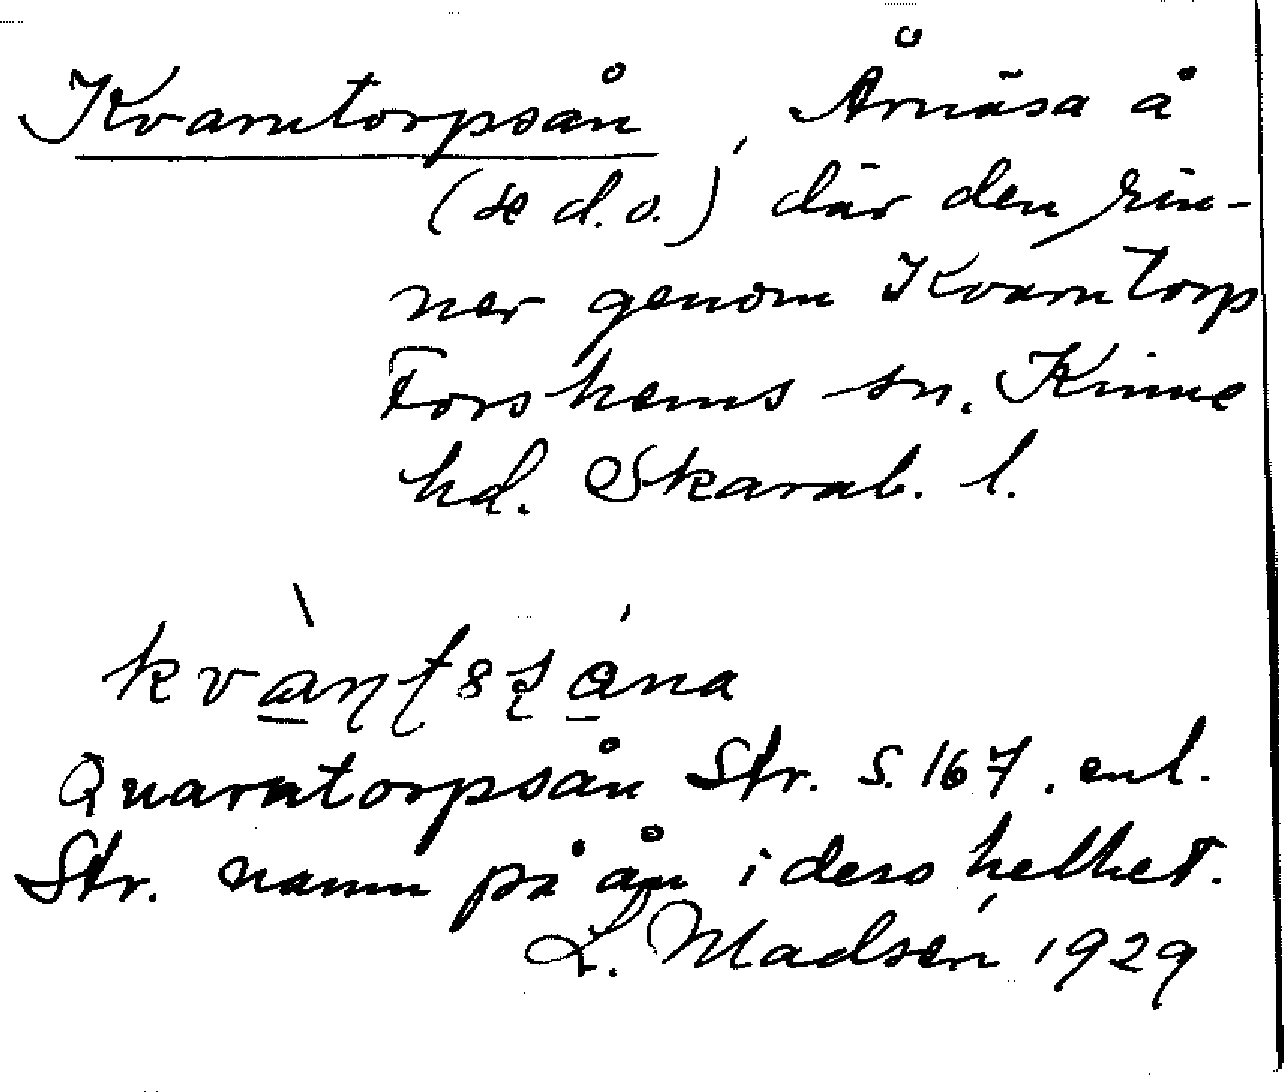 Kvarntorpsån, Årnäsa å
(se d.o.) där den rin-
ner genom Kvarntorp
Forshems sn. Kinne
hd. Skarab. l.
Quarntorpsån Str. S. 167. enl.
Str. namn på ån i dess helhet.
L. Madsén 1929